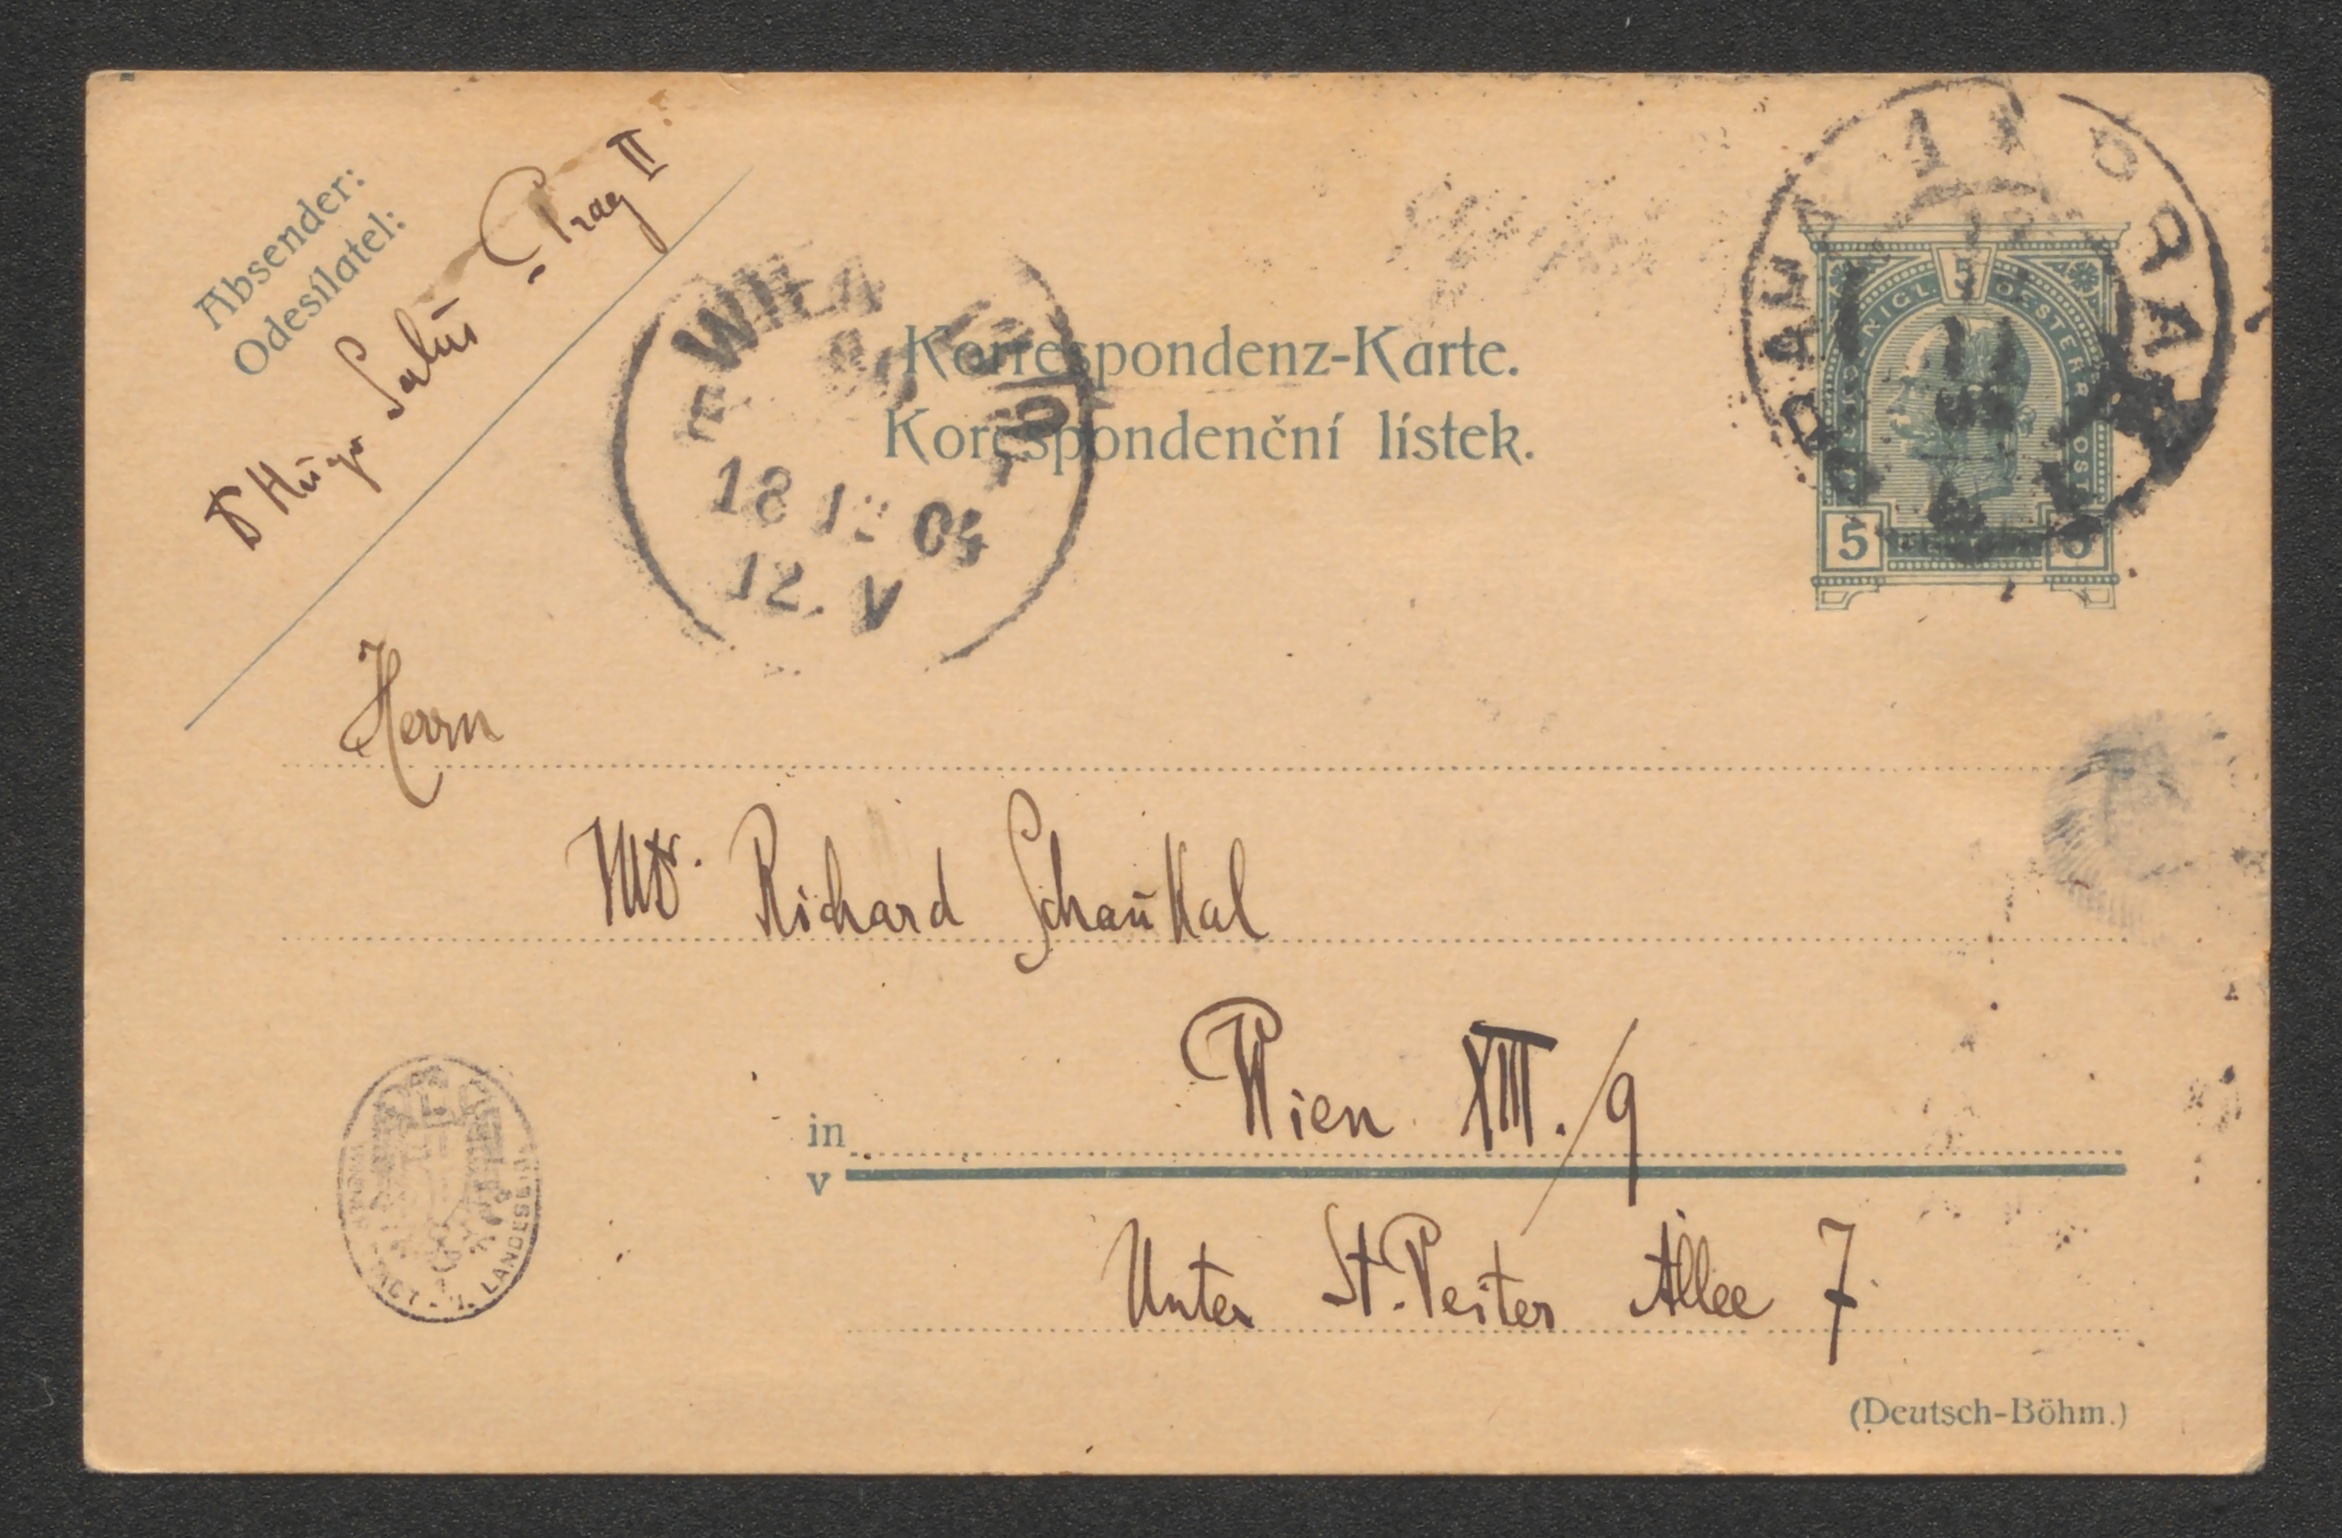 Absender:
Odesílatel:
Dr Hugo Salus Prag II
Korrespondenz-Karte.
Korespondenční lístek.
WIEN
18 12 04
12. V
PRAHA 1 PRAG
5
5 5
Herrn
Richard Schaukal
in Wien XIII./9
v
Unter St. Veiter Allee 7
LANDESBIBL
(Deutsch-Böhm.)